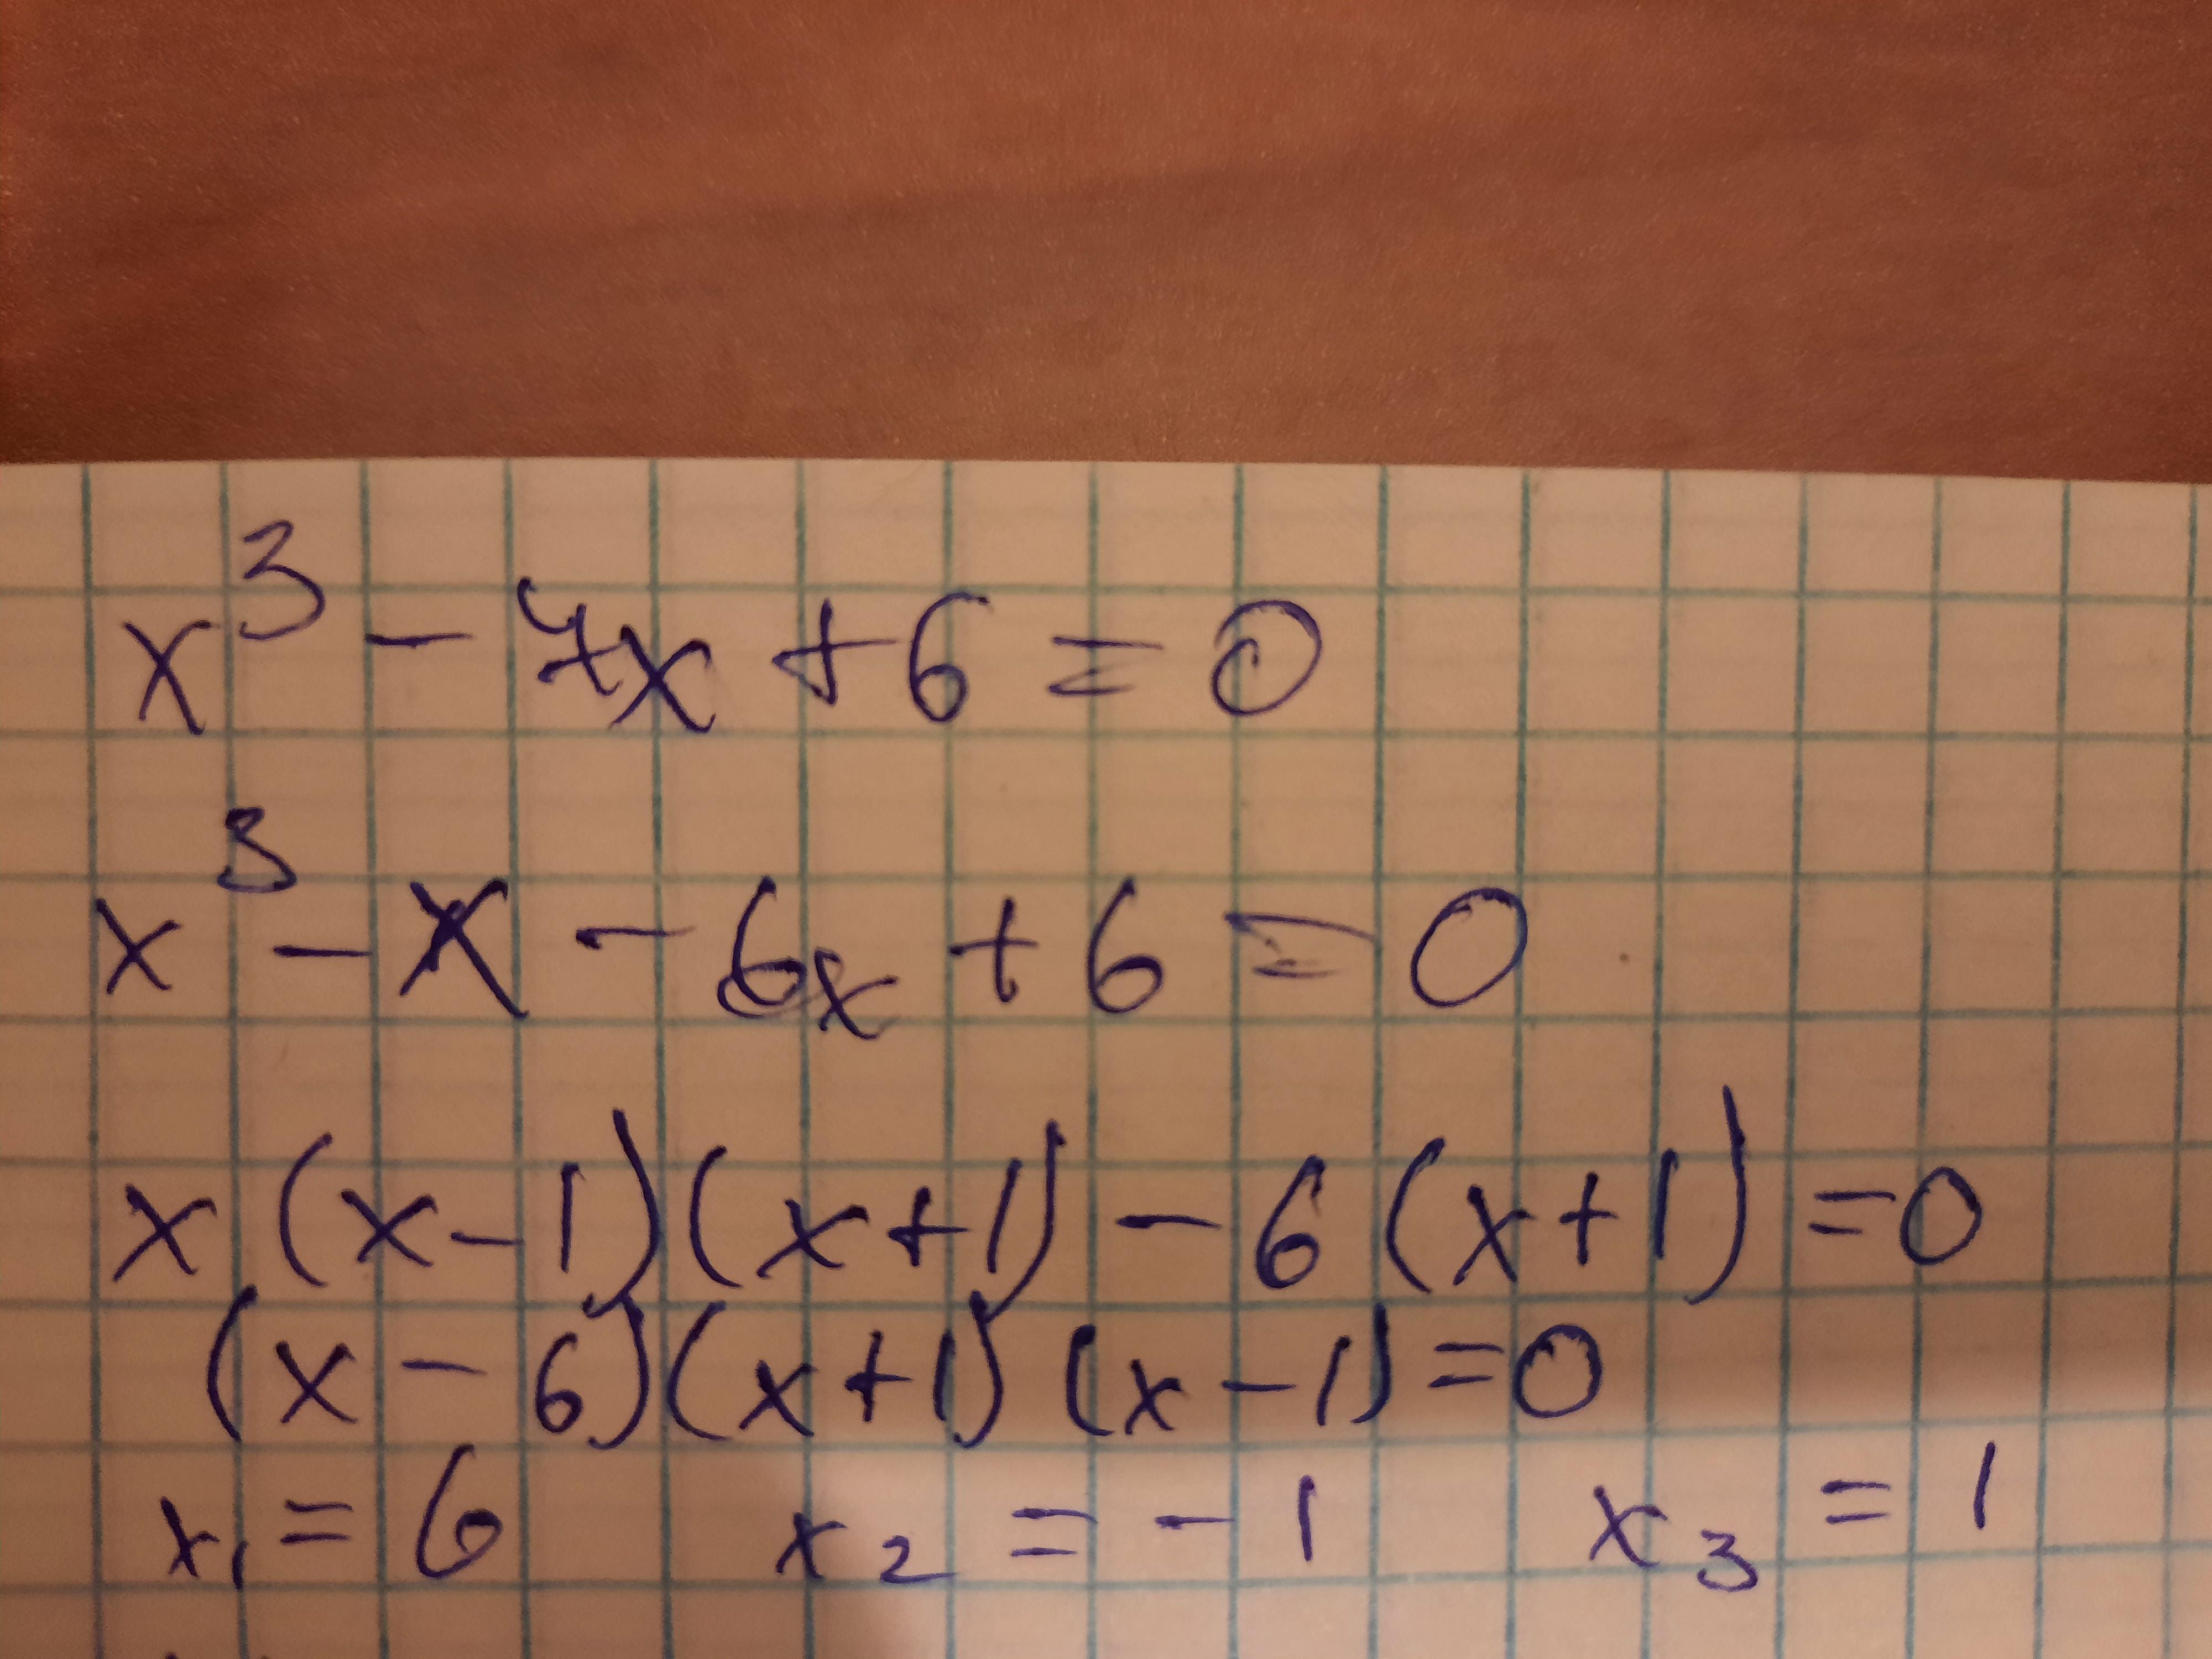 x³ - 7x + 6 = 0
x³ - x - 6x + 6 = 0
x(x-1)(x+1) - 6(x+1) = 0
(x-6)(x+1)(x-1) = 0
x₁ = 6 x₂ = -1 x₃ = 1